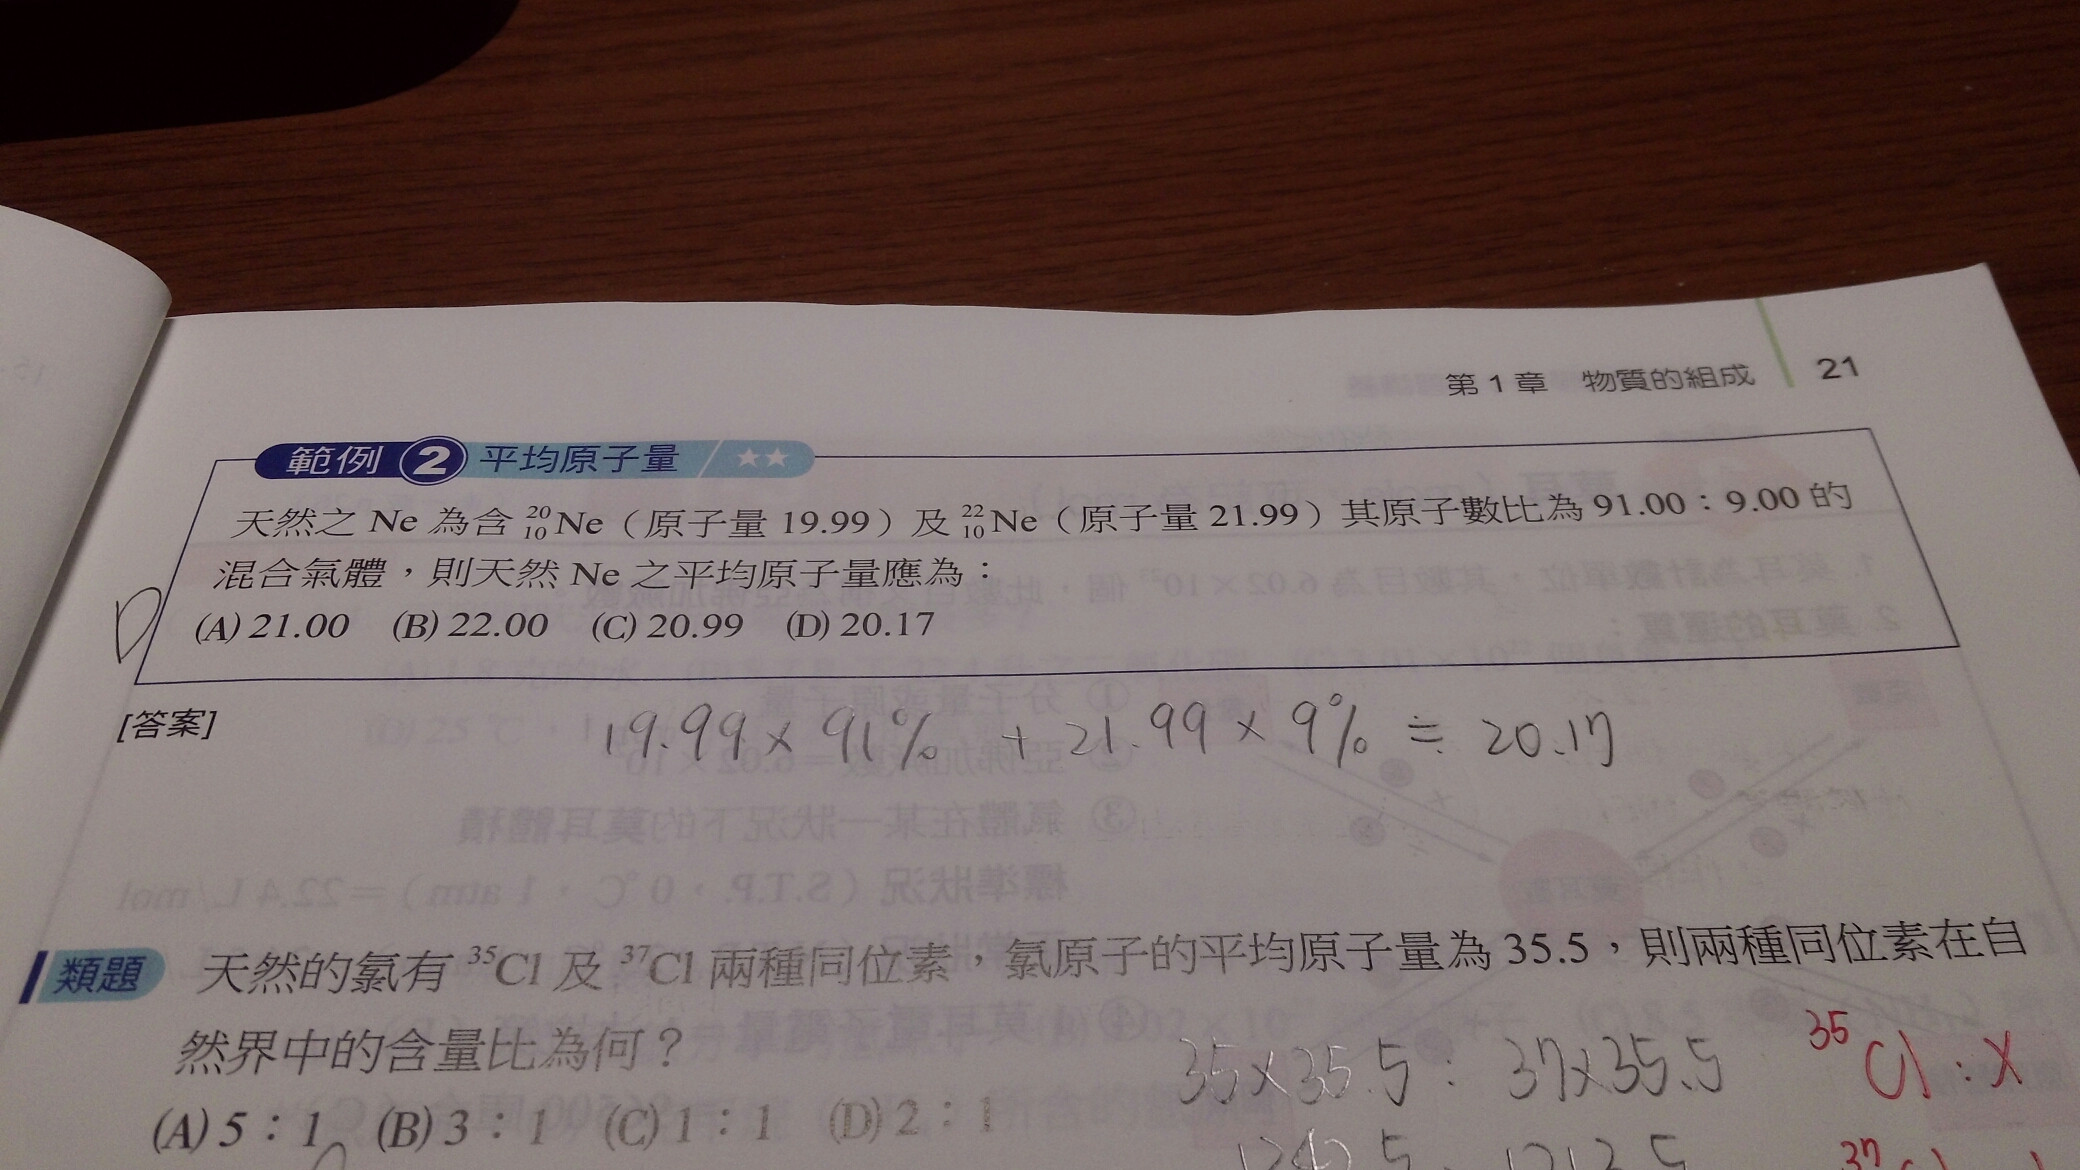 第 1 章 物質的組成 21
範例 2 平均原子量 ★★
天然之 Ne 為含 ²⁰₁₀Ne（原子量 19.99）及 ²²₁₀Ne（原子量 21.99）其原子數比為 91.00：9.00 的
混合氣體，則天然 Ne 之平均原子量應為：
D
(A) 21.00 (B) 22.00 (C) 20.99 (D) 20.17
[答案]
19.99 × 91% + 21.99 × 9% ≒ 20.17
類題 天然的氯有 ³⁵Cl 及 ³⁷Cl 兩種同位素，氯原子的平均原子量為 35.5，則兩種同位素在自
然界中的含量比為何？
35×35.5 : 37×35.5
³⁵Cl : X
(A) 5：1 (B) 3：1 (C) 1：1 (D) 2：1